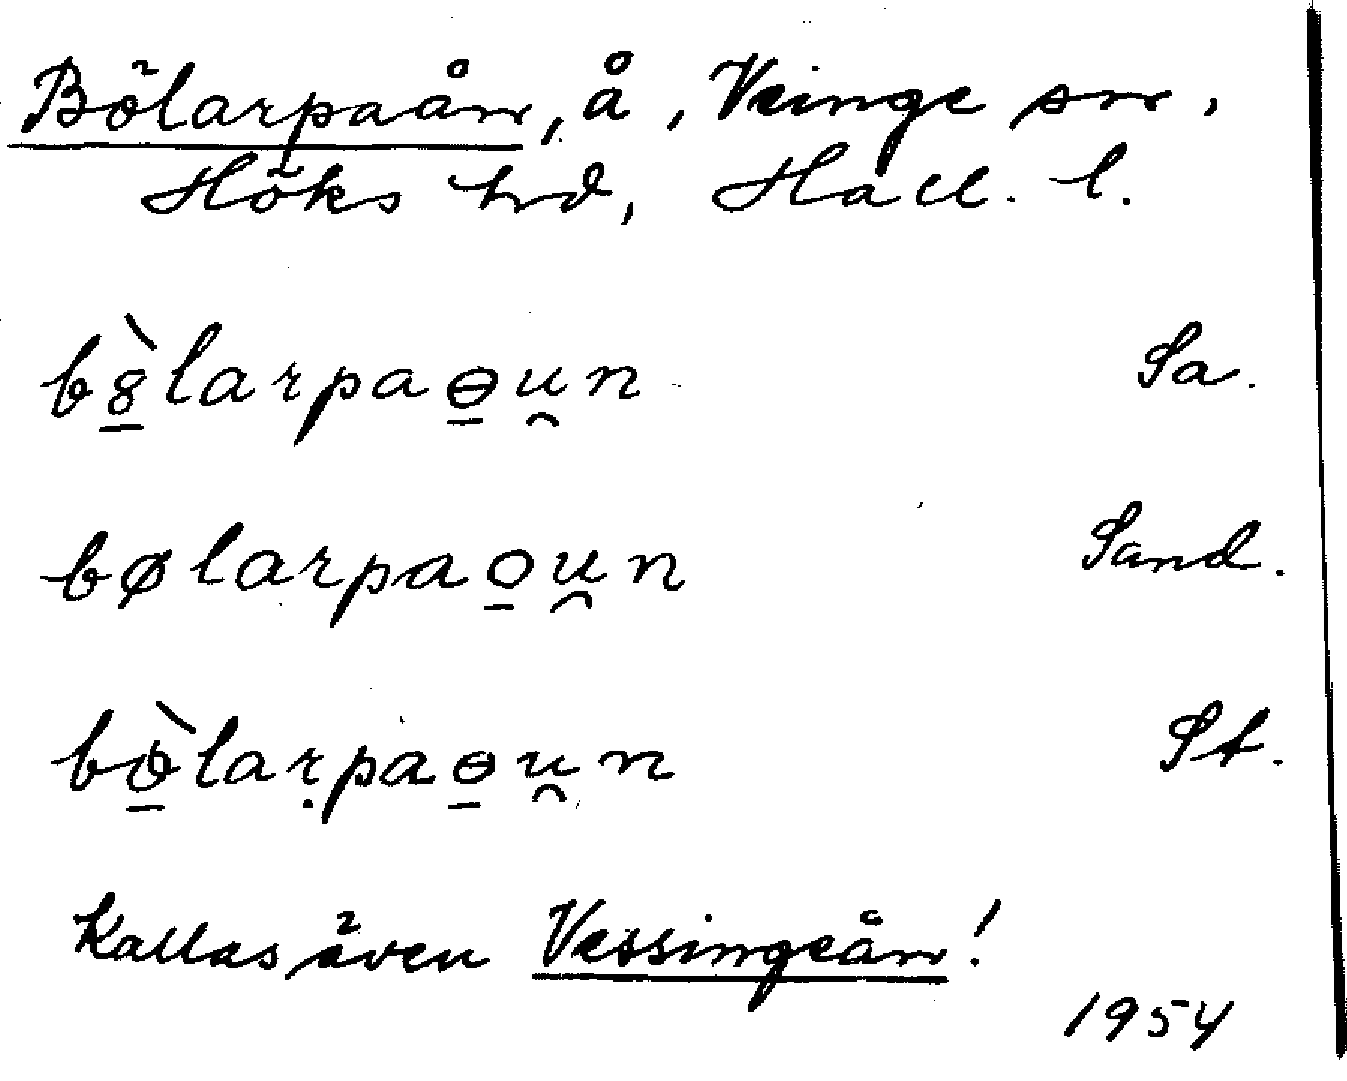 Bölarpaån, å, Veinge sn,
Höks hrd, Hall. l.
bö̠̀larpaɵ̠u̯n Sa.
bølarpao̠u̯n Sand.
bɵ̠̀laṛpaɵ̠u̯n St.
Kallas även Vessingeån!
1954